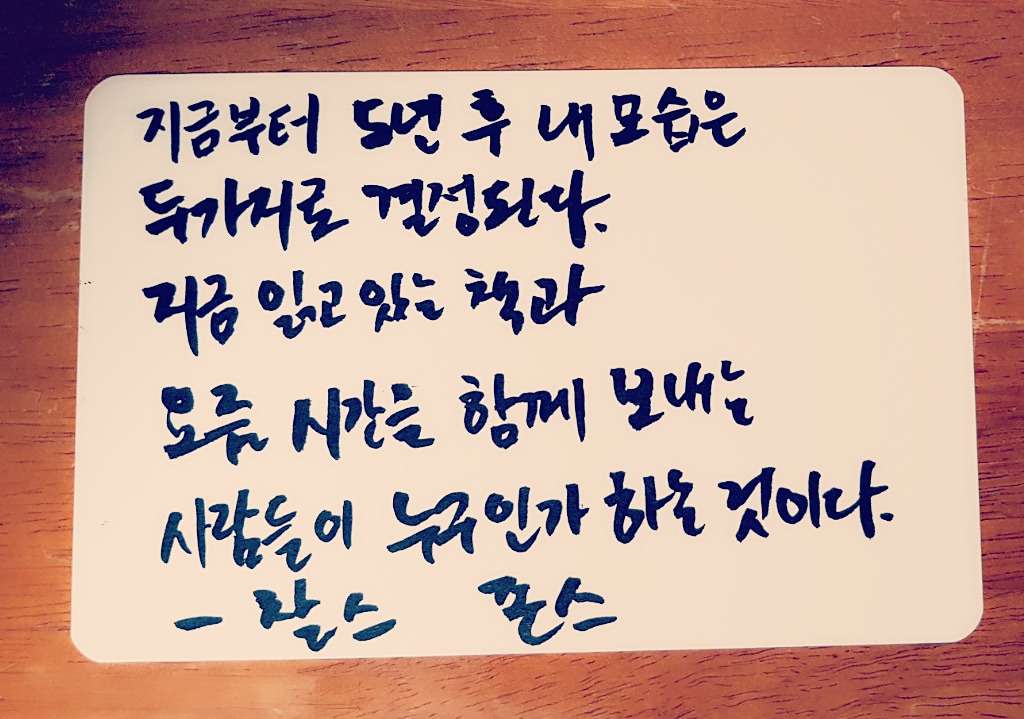 지금부터 5년 후 내 모습은
두가지로 결정된다.
지금 읽고 있는 책과
요즘 시간을 함께 보내는
사람들이 누구인가 하는 것이다.
- 찰스 존스